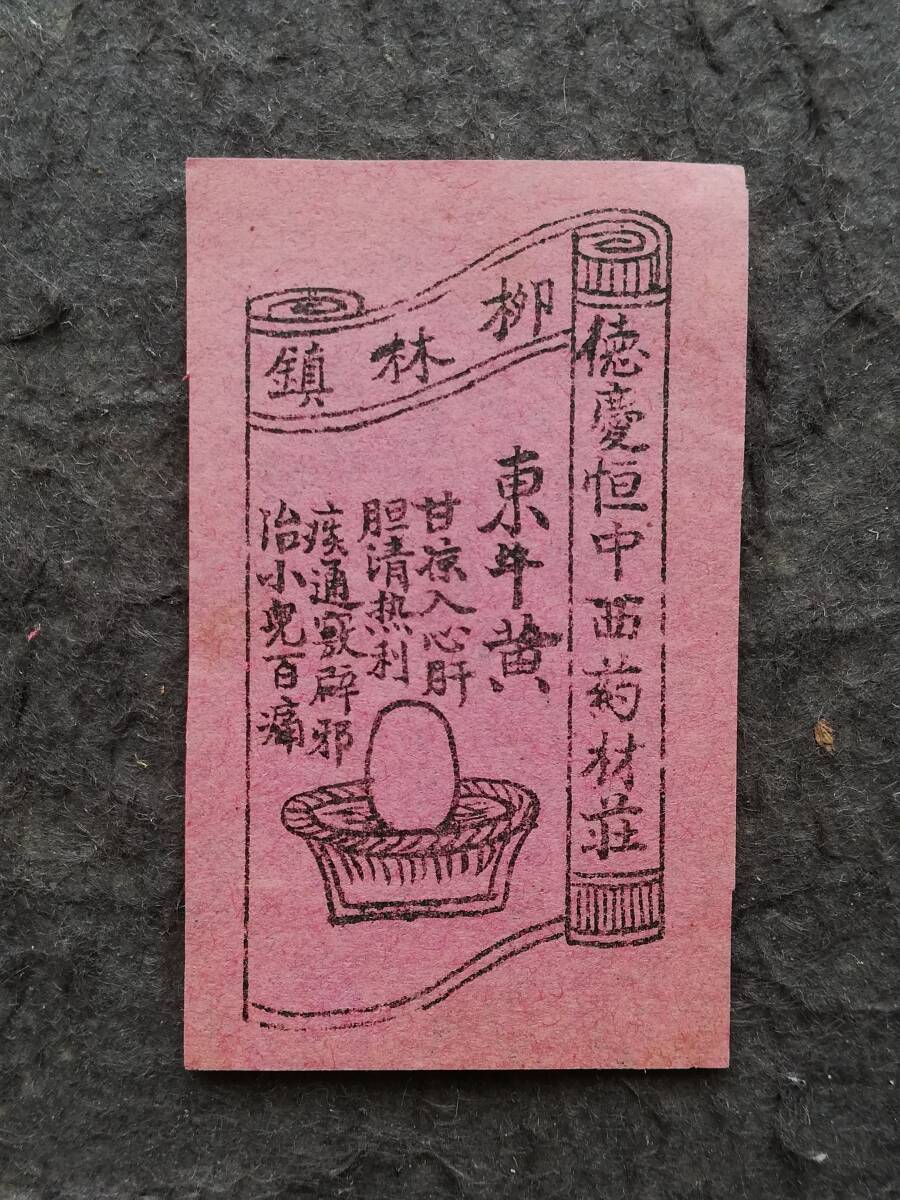 柳林鎮
德慶恒中西药材莊
東牛黄
甘凉入心肝
胆清热利
痰通竅辟邪
治小兒百病